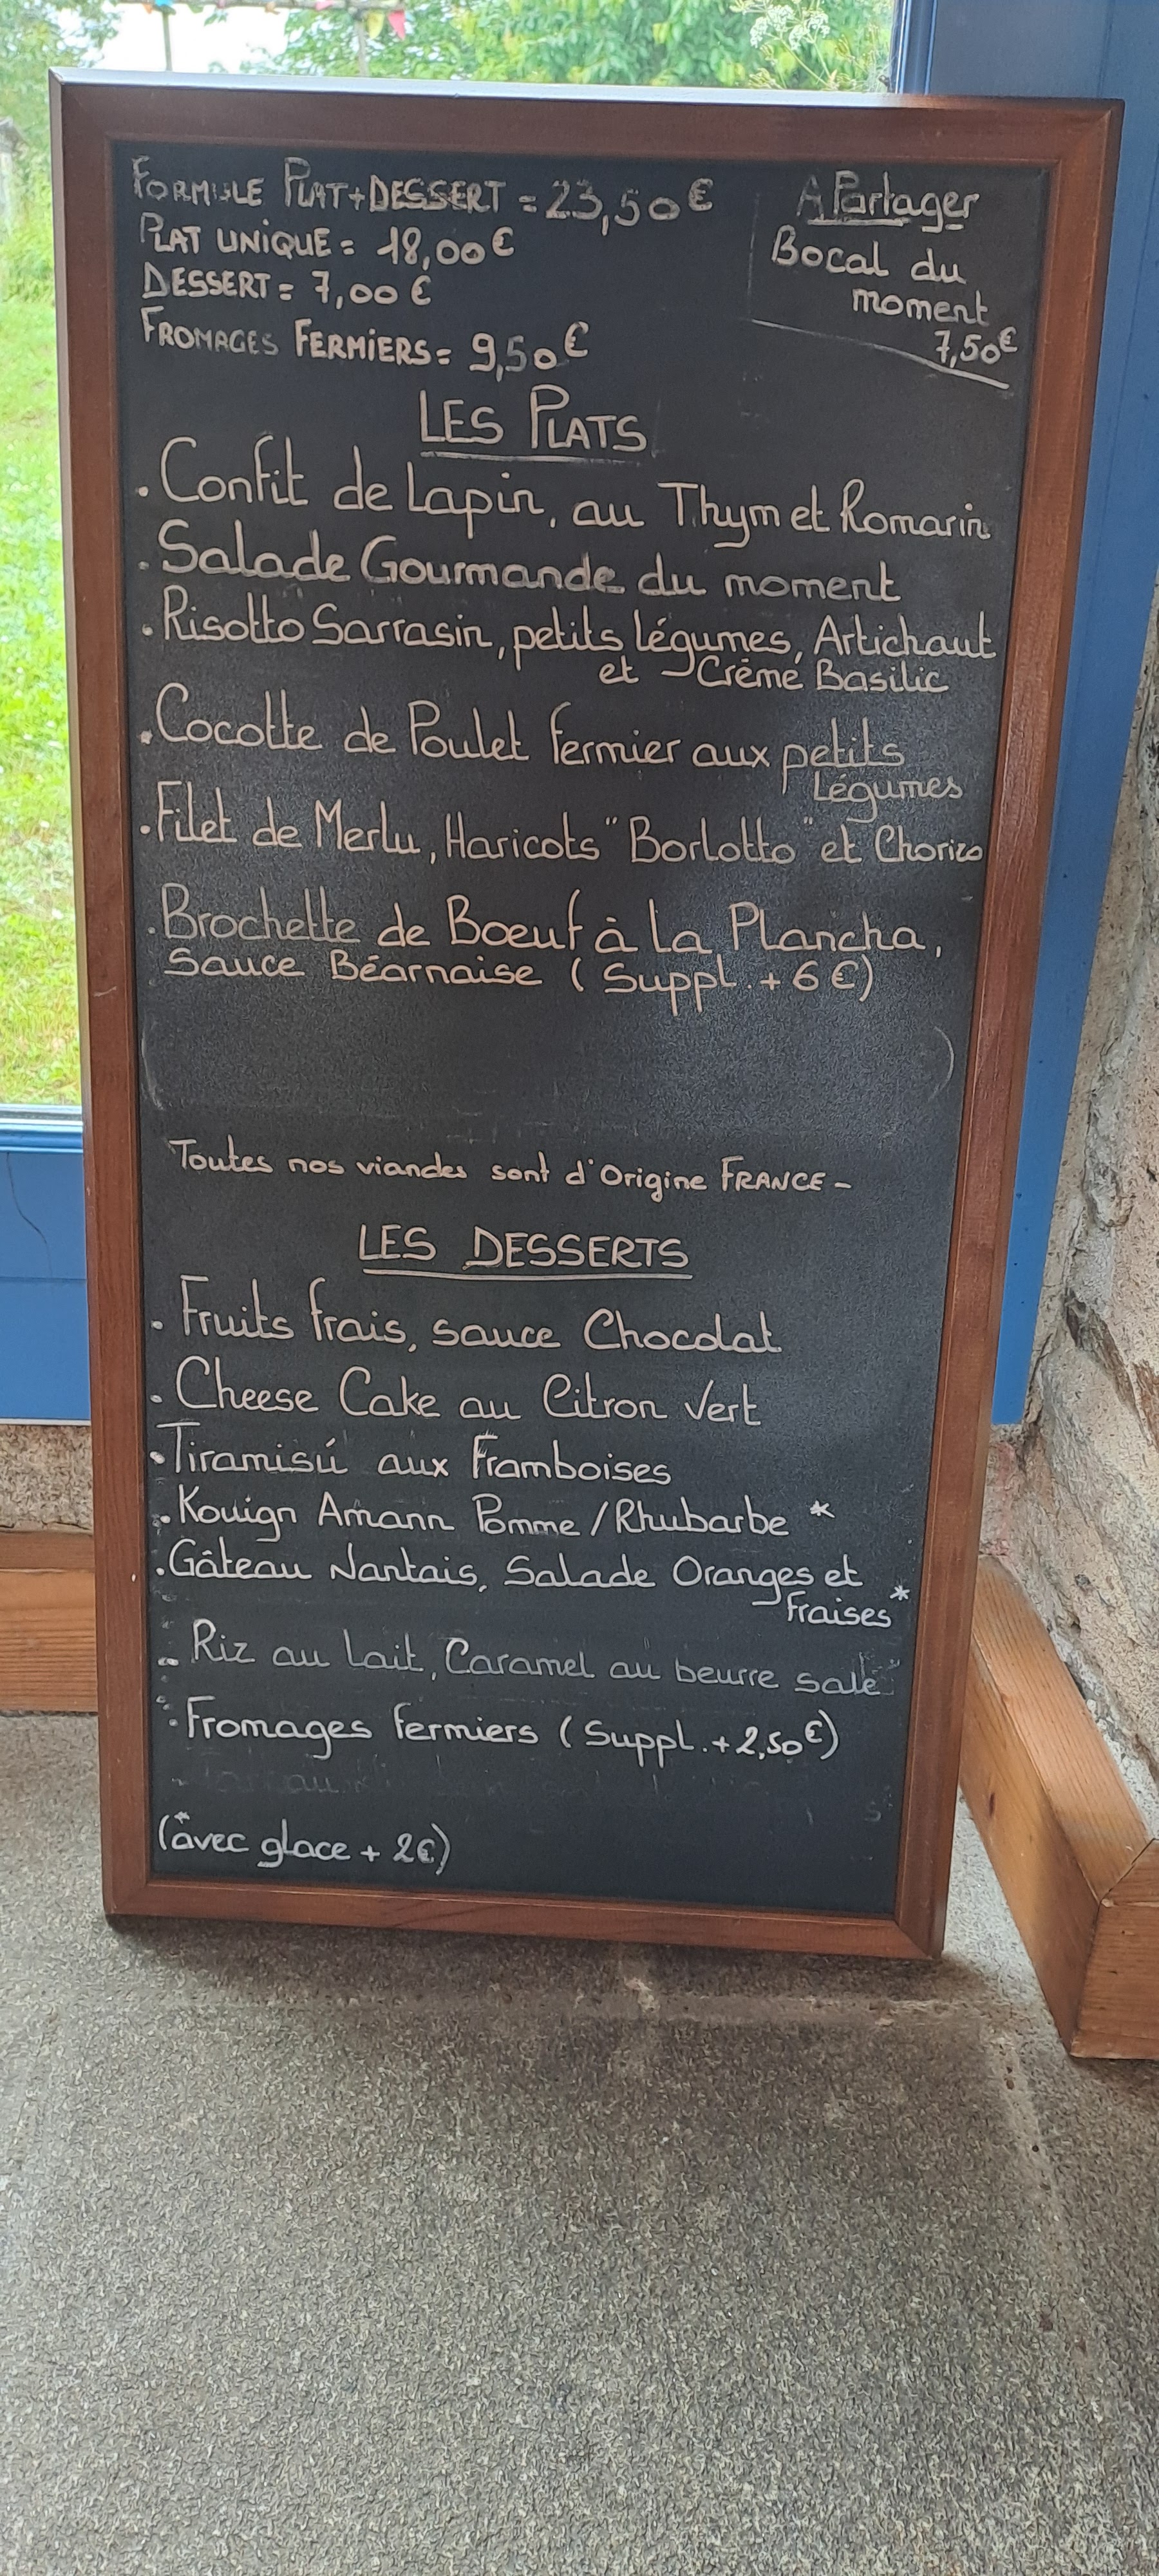 FORMULE PLAT+DESSERT = 23,50€
PLAT UNIQUE = 18,00€
DESSERT = 7,00€
FROMAGES FERMIERS = 9,50€
A Partager
Bocal du
moment
7,50€
LES PLATS
. Confit de Lapin, au Thym et Romarin
. Salade Gourmande du moment
. Risotto Sarrasin, petits légumes, Artichaut
et Crème Basilic
. Cocotte de Poulet fermier aux petits
Légumes
. Filet de Merlu, Haricots "Borlotto" et Chorizo
. Brochette de Boeuf à la Plancha,
Sauce Béarnaise (Suppl. + 6€)
Toutes nos viandes sont d'Origine FRANCE -
LES DESSERTS
. Fruits frais, sauce Chocolat
. Cheese Cake au Citron Vert
. Tiramisú aux Framboises
. Kouign Amann Pomme / Rhubarbe *
. Gâteau Nantais, Salade Oranges et
Fraises *
- Riz au Lait, Caramel au beurre salé
. Fromages fermiers (Suppl. + 2,50€)
(* avec glace + 2€)